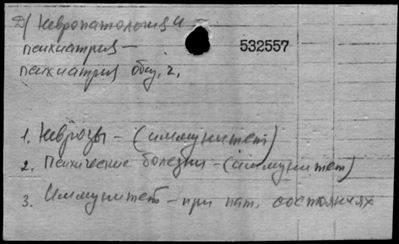 Д/ Невропатология и
психиатрия —
532557
психиатрия общ. 2.
1. Неврозы — (иммунитет)
2. Психические болезни — (иммунитет)
3. Иммунитет — при пат. состояниях